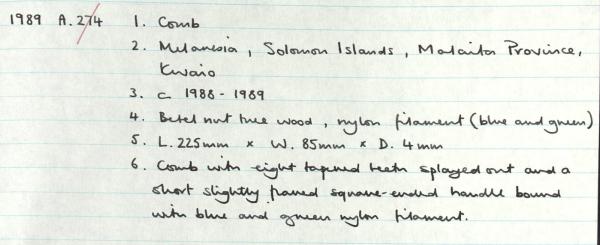 1989 A.274 1. Comb
2. Melanesia, Solomon Islands, Malaita Province,
Kwaio
3. c 1988-1989
4. Betel nut tree wood, nylon filament (blue and green)
5. L. 225mm x W. 85mm x D. 4mm
6. Comb with eight tapered teeth splayed out and a
short slightly flared square-ended handle bound
with blue and green nylon filament.